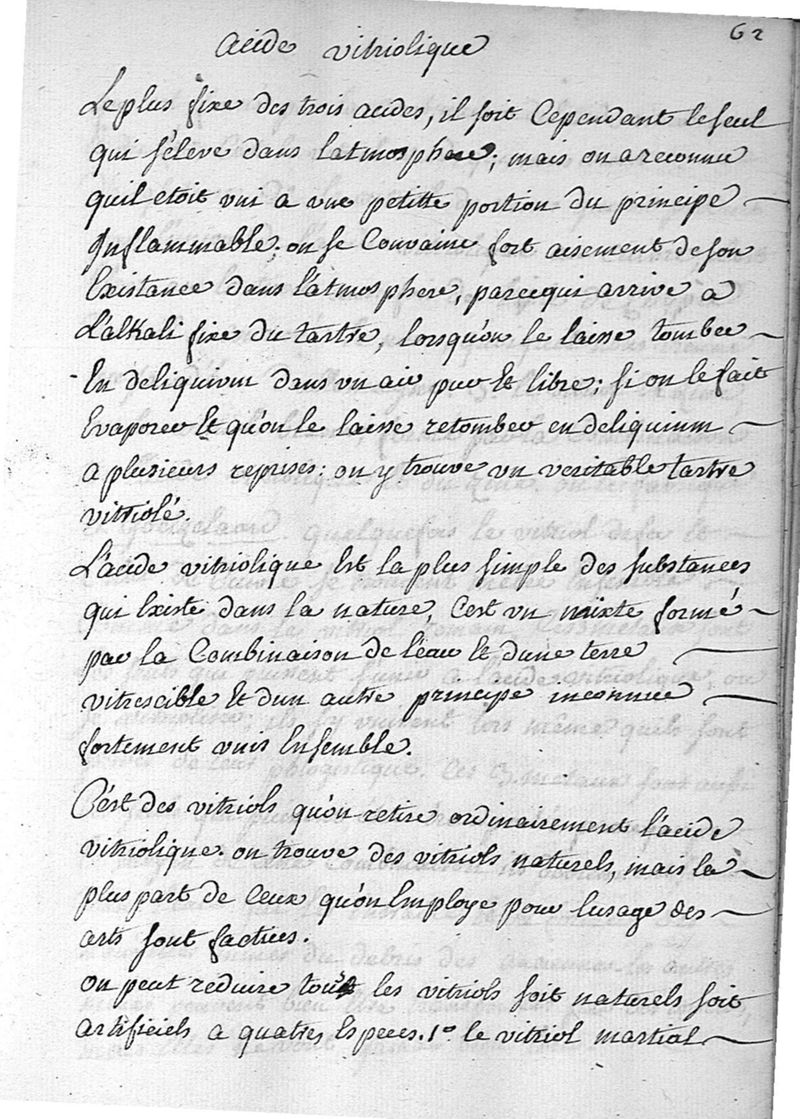 62
acide vitriolique
Le plus fixe des trois acides, il soit Cependant le seul
qui s'éleve dans latmosphere; mais on a reconnu
quil etoit uni a une petitte portion du principe
Inflammable. on se Convainc fort aisement de son
Existance dans l'atmosphere, parcequi arrive a
L'alkali fixe du tartre, lorsqu'on le laisse tomber
En deliquium dans un air pur Et libre; si on le fait
Evaporer Et qu'on le laisse retomber en deliquium
a plusieurs reprises: on y trouve un veritable tartre
vitriolé.
L'acide vitriolique Est la plus simple des substances
qui Existe dans la nature, C'est un mixte formé
par la Combinaison de l'eau Et d'une terre
vitrescible Et dun autre principe inconnue
fortement unis Ensemble.
C'est des vitriols qu'on retire ordinairement l'acide
vitriolique. on trouve des vitriols naturels, mais la
plus part de Ceux qu'on Employe pour lusage des
arts sont factices.
on peut reduire tous les vitriols soit naturels soit
artificiels a quatres Especes. 1o le vitriol martial